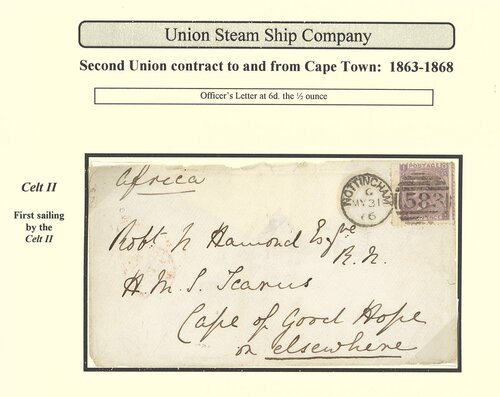 Union Steam Ship Company
Second Union contract to and from Cape Town: 1863-1868
Officer's Letter at 6d. the ½ ounce
Celt II
First sailing
by the
Celt II
Africa
NOTTINGHAM
G
MY 31
66
POSTAGE
583
Robt N Hamond Esqre
R. N.
H. M. S. Icarus
Cape of Good Hope
or elsewhere